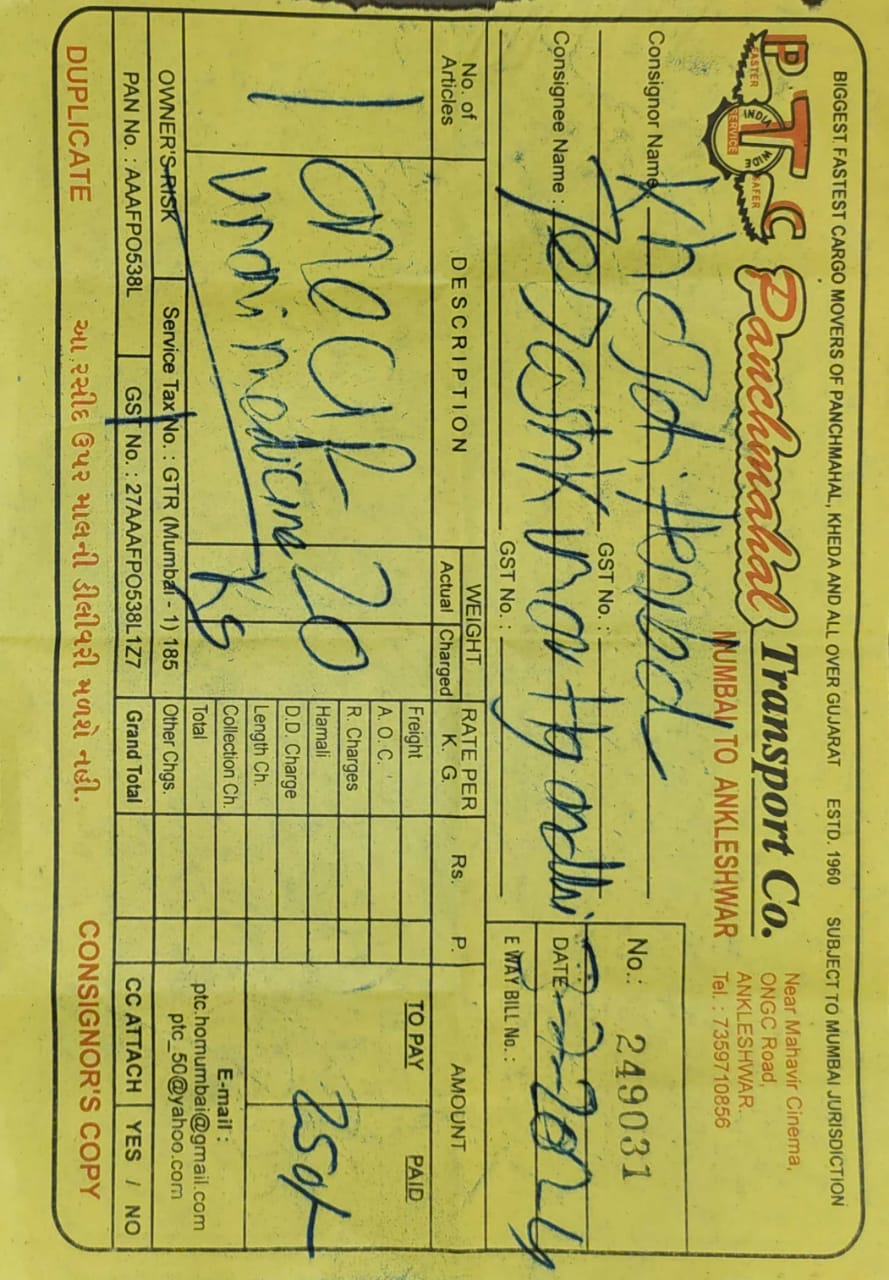 BIGGEST FASTEST CARGO MOVERS OF PANCHMAHAL, KHEDA AND ALL OVER GUJARAT ESTD. 1960 SUBJECT TO MUMBAI JURISDICTION
PTC
FASTER SAFER
INDIA WIDE
SERVICE
Panchmahal Transport Co.
MUMBAI TO ANKLESHWAR
Near Mahavir Cinema,
ONGC Road,
ANKLESHWAR.
Tel. : 7359710856
Consignor Name
GST No. :
Consignee Name :
GST No. :
No.: 249031
DATE :
E WAY BILL No. :
No. of Articles
DESCRIPTION
WEIGHT
Actual Charged
RATE PER K. G.
Rs. P.
AMOUNT
TO PAY PAID
1
one
medicine
20
kg
250/-
Freight
A. O. C.
R. Charges
Hamali
D.D. Charge
Length Ch.
Collection Ch.
Total
Other Chgs.
Grand Total
E-mail :
ptc.homumbai@gmail.com
ptc_50@yahoo.com
OWNER'S RISK
Service Tax No. : GTR (Mumbai - 1) 185
PAN No. : AAAFPO538L
GST No. : 27AAAFPO538L1Z7
CC ATTACH YES / NO
DUPLICATE
આ રસીદ ઉપર માલની ડીલીવરી મળશે નહી.
CONSIGNOR'S COPY